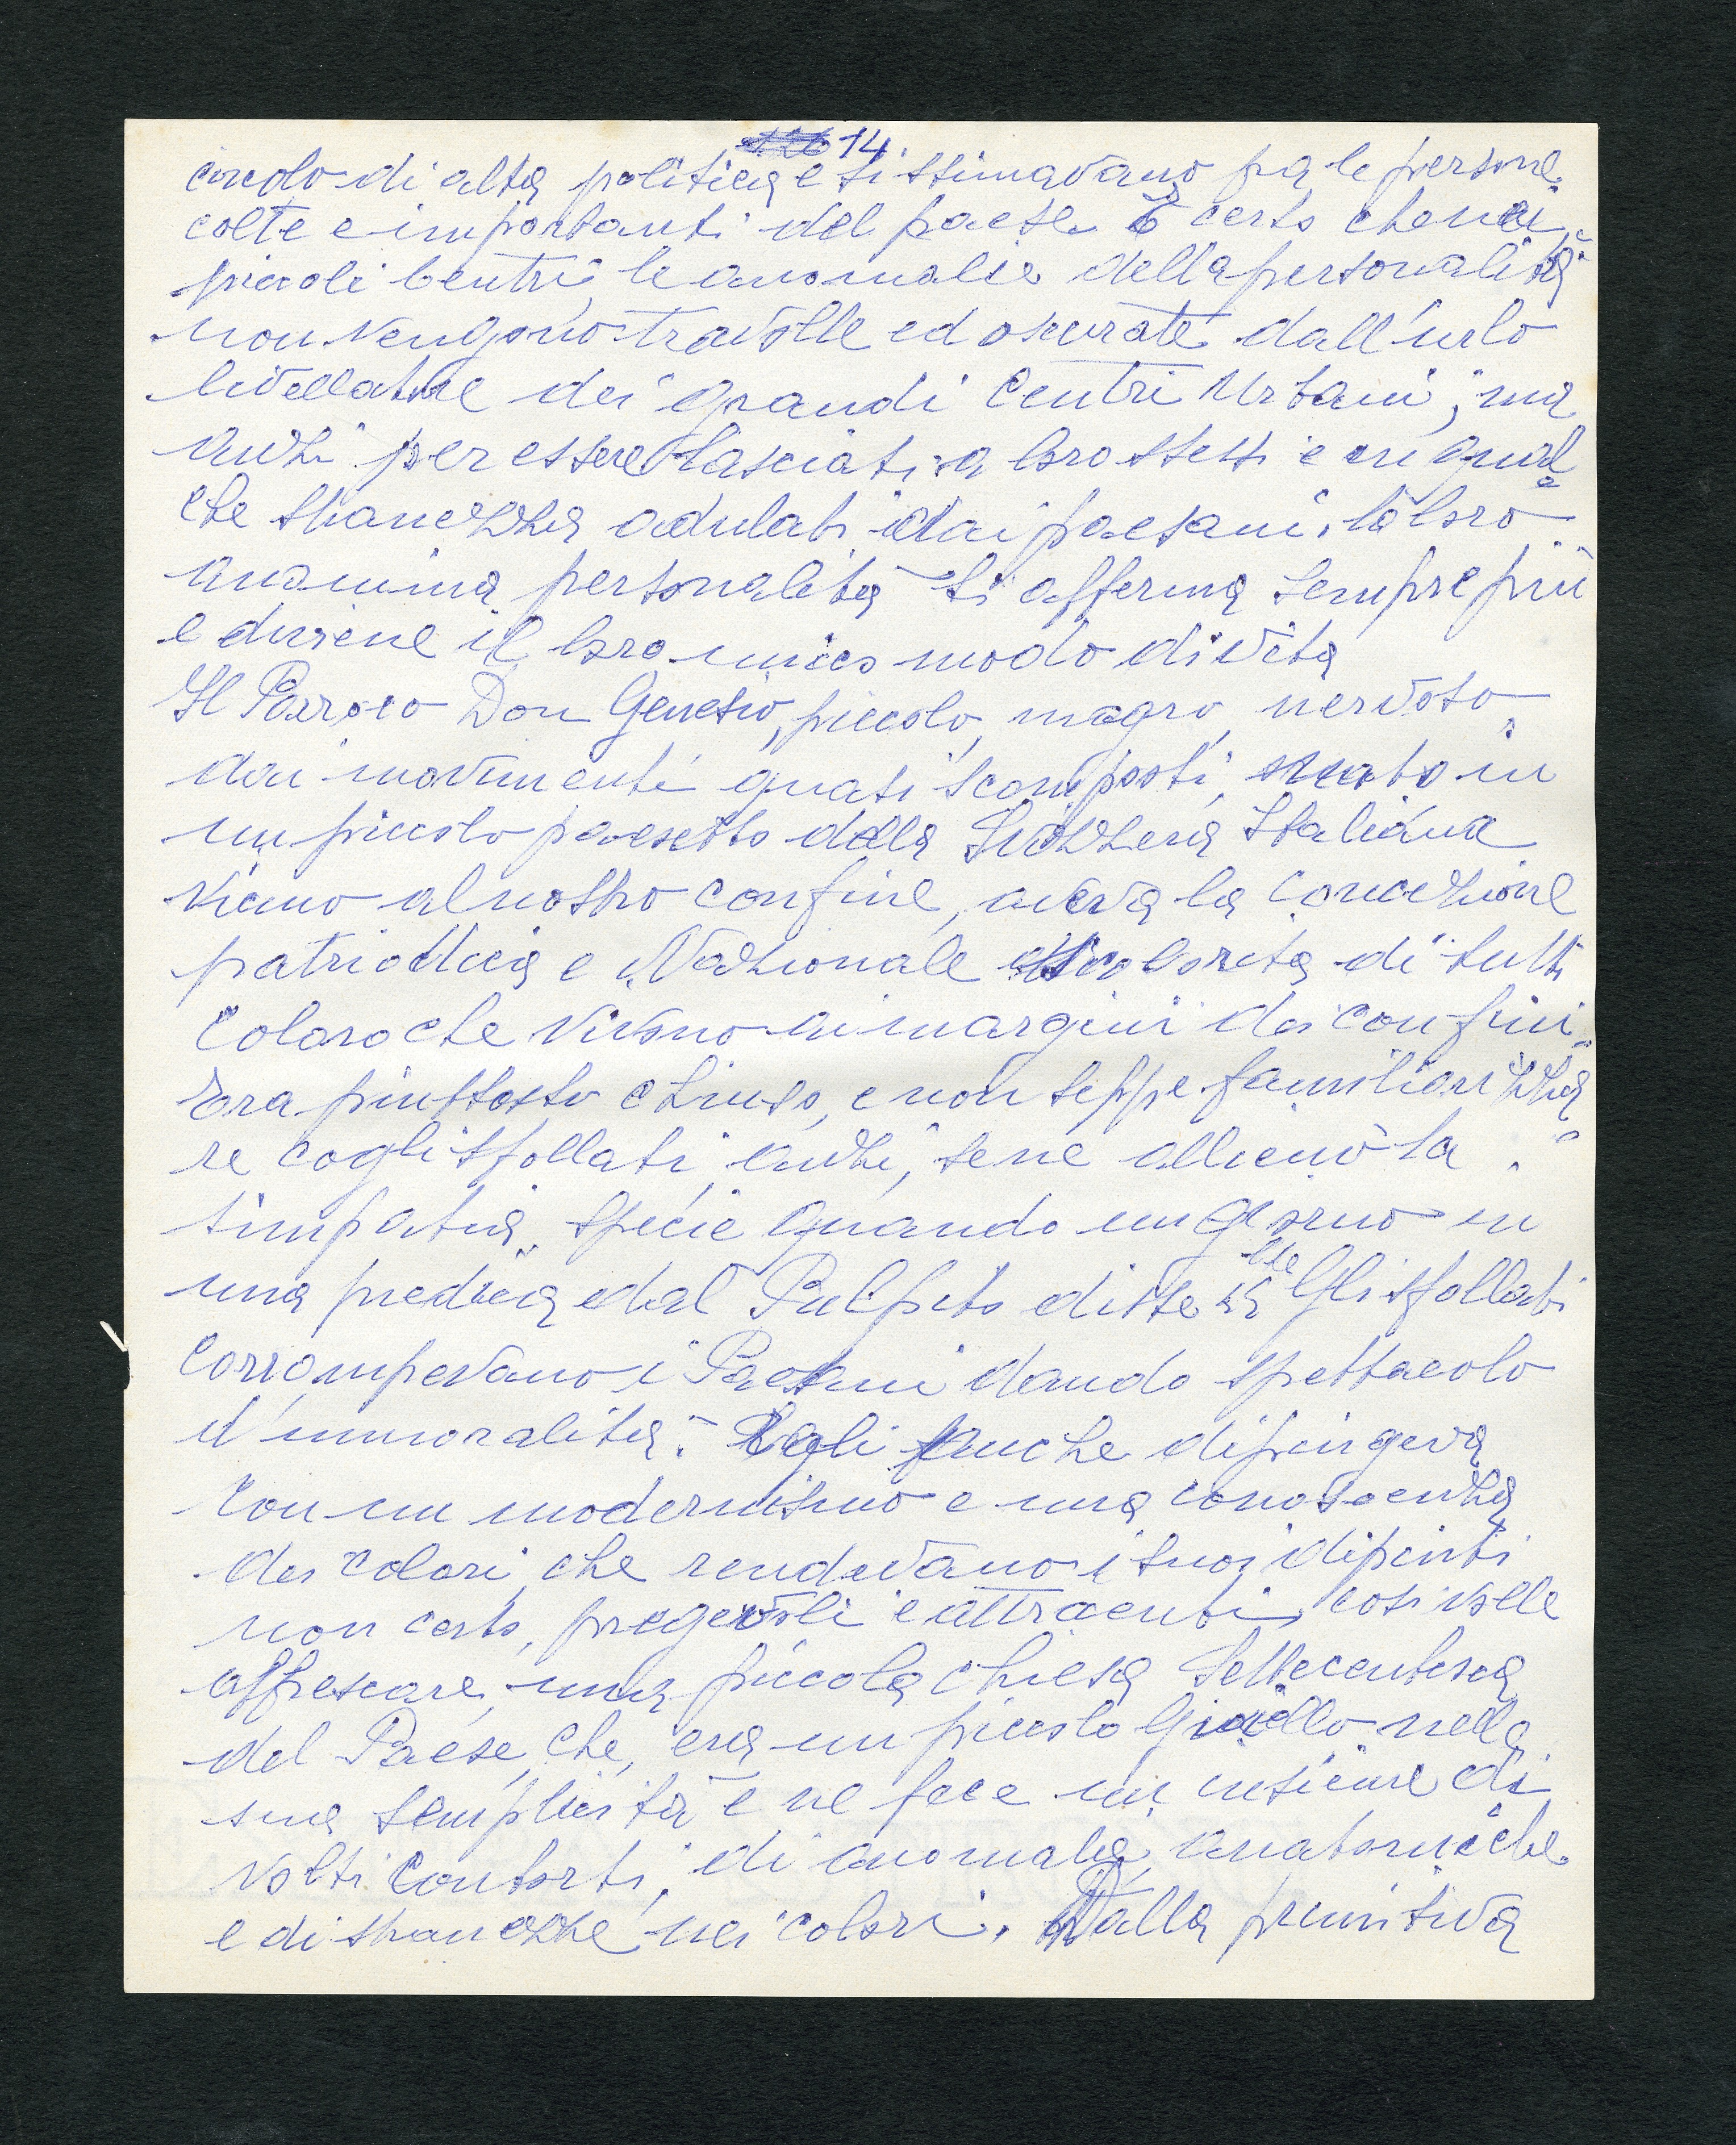 14.
circolo di alta politica e si stimavano fra le persone
colte e importanti del paese. È certo che nei
piccoli Centri, le anomalie della personalità
non vengono travolte ed oscurate dall'urlo
livellatore dei grandi Centri Urbani, ma
anzi per essere lasciati a loro stessi e in qual
che stranezza adulati dai paesani, la loro
anonima personalità si afferma sempre più
e diviene il loro unico modo di vita
Il Parroco Don Genesio, piccolo, magro, nervoso
dai movimenti quasi scomposti, nato in
un piccolo paesetto della Svizzera Italiana
vicino al nostro confine, aveva la concezione
patriottica e Nazionale scolorita di tutti
coloro che vivono ai margini dei confini.
Era piuttosto chiuso, e non seppe familiarizza
re cogli sfollati, anzi, se ne allienò la
simpatia, specie quando un giorno in
una predica dal Pulpito disse che Gli sfollati
corrompevano i Paesani dando spettacolo
d'immoralità. Egli anche dipingeva
con un modernismo e una conoscenza
dei colori, che rendevano i suoi dipinti
non certo, pregevoli e attraenti, così volle
affrescare, una piccola chiesa Settecentesca
del Paese, che, era un piccolo Gioiello nella
sua semplicità e ne fece un insieme di
volti contorti, di anomalie anatomiche
e di stranezze nei colori. Dalla primitiva